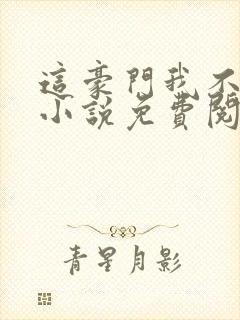 這豪門我不
小說免費閱
青星月影